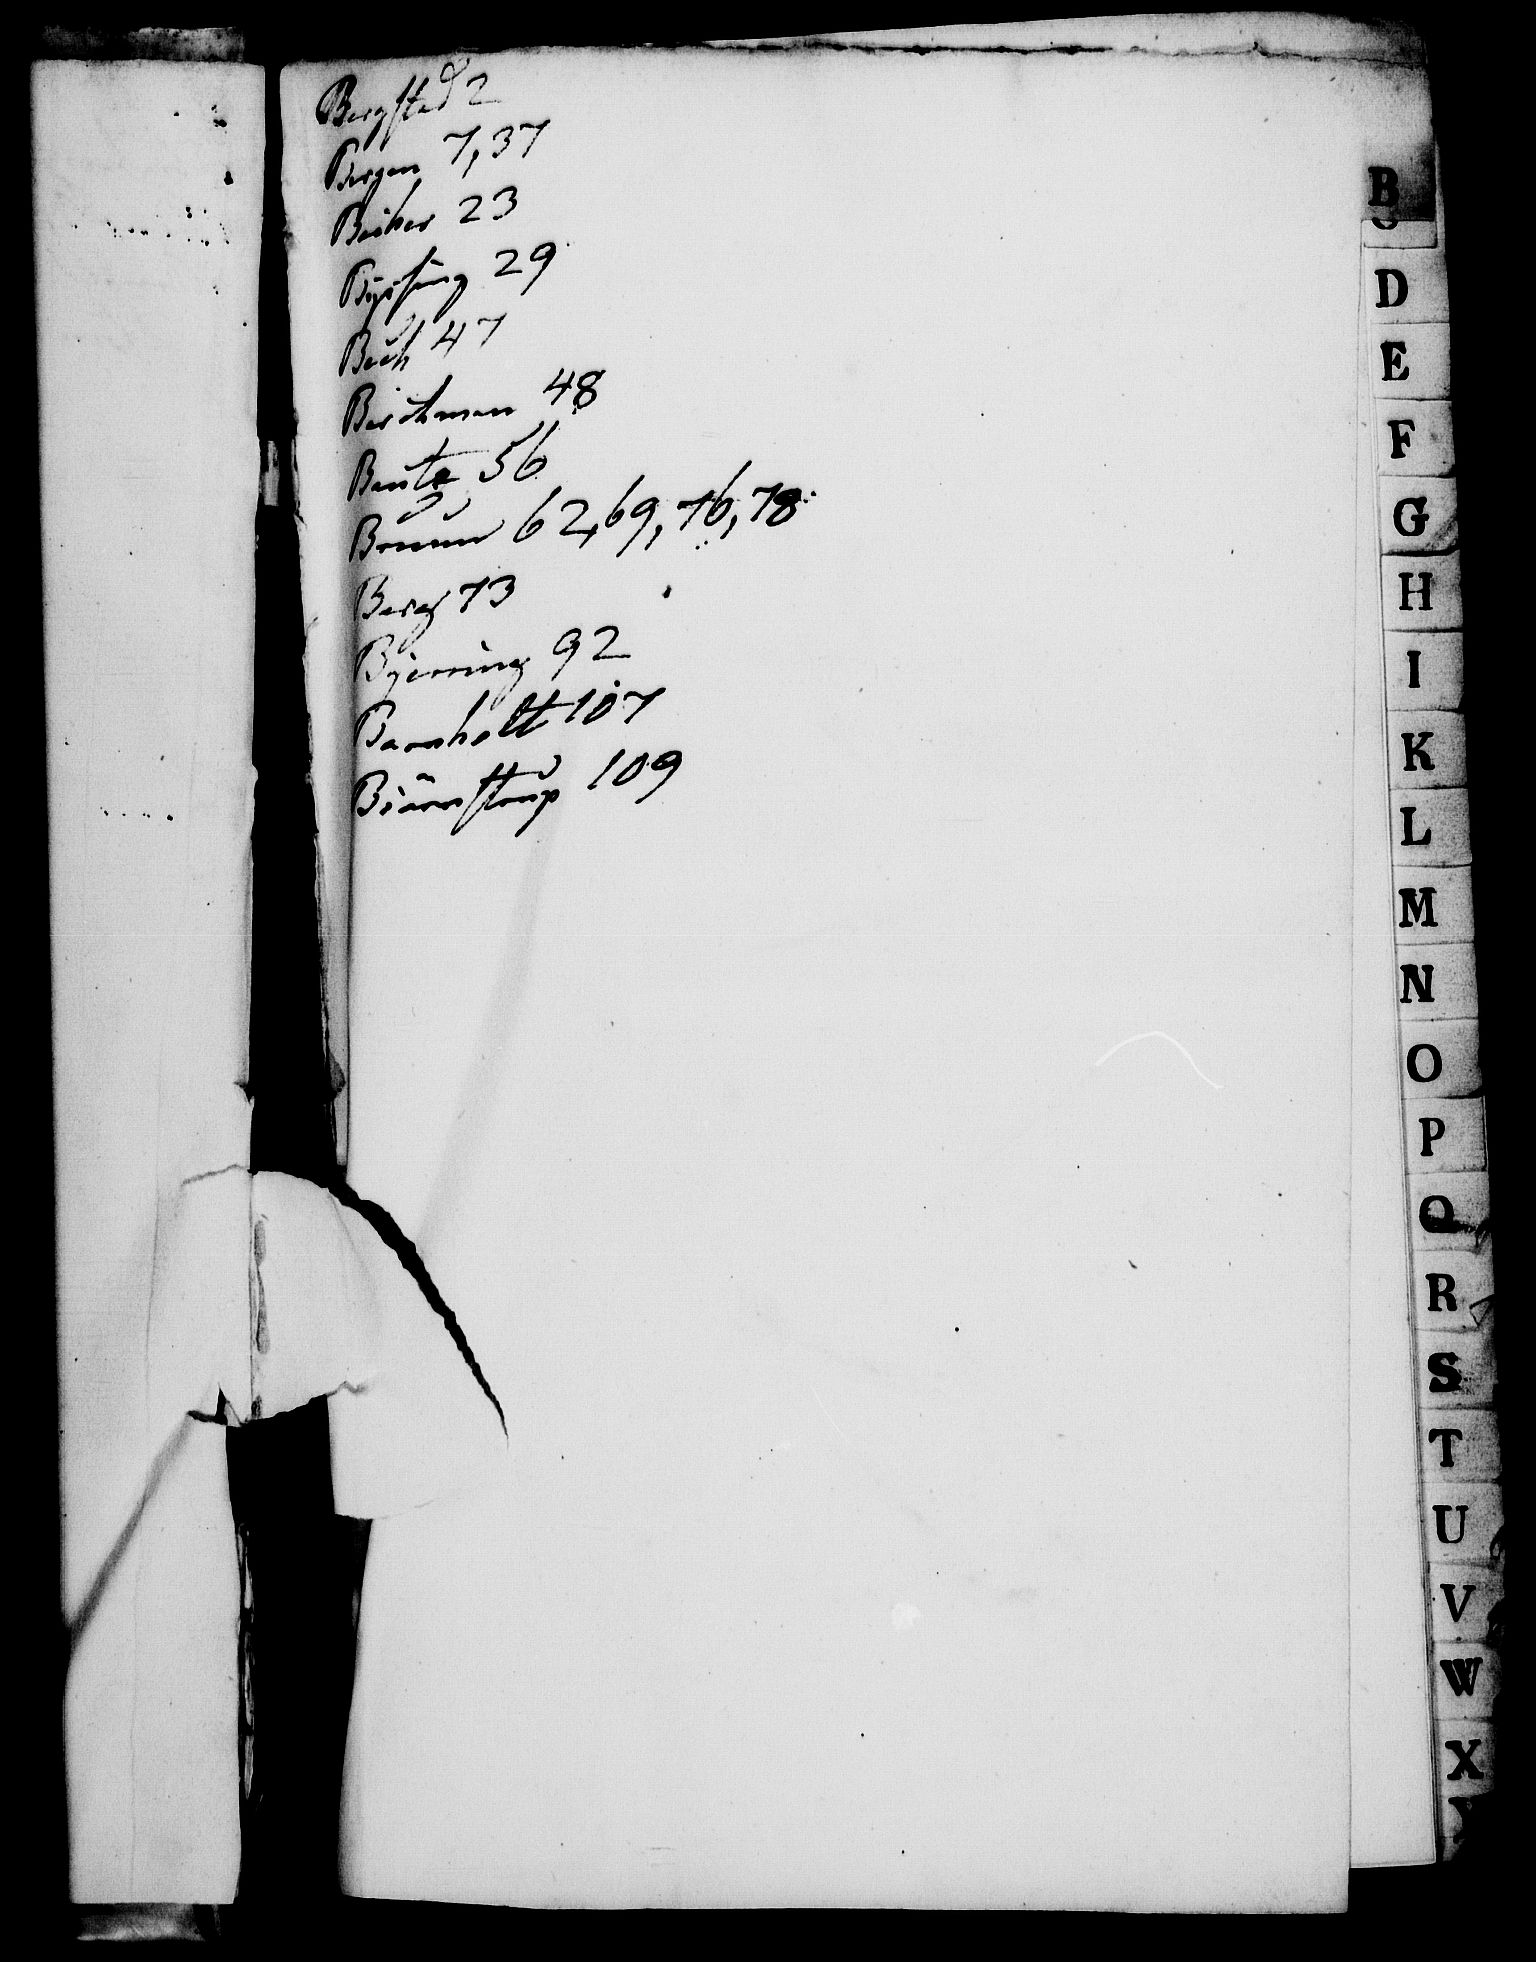 Bergsted 2
Bergen 7, 37
Beiker 23
Bysting 29
Bech 47
Birchman 48
Bentz 56
Bruun 62, 69, 76, 78
Berg 73
Bjerring 92
Barnholtt 107
Biörnstrup 109
B
D
E
F
G
H
I
K
L
M
N
O
P
Q
R
S
T
U
V
W
X